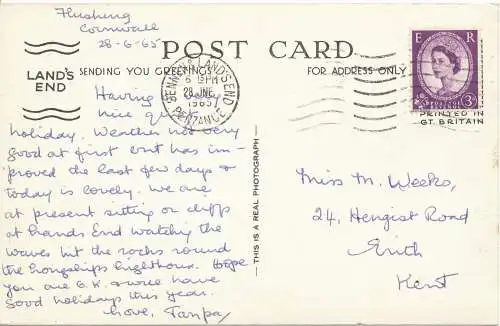 Flushing
Cornwall
28-6-65
POST CARD
LAND'S
END
SENDING YOU GREETINGS
FOR ADDRESS ONLY
SENNEN & LAND'S END
6 15PM
28 JNE
1965
PENZANCE
E R
3D
PRINTED IN
GT. BRITAIN
Having a very
nice quiet
holiday. Weather not very
good at first but has im-
proved the last few days &
today is lovely. We are
at present sitting on cliffs
at Lands End watching the
waves hit the rocks round
the Longships lighthouse. Hope
you are O.K. & will have
good holidays this year.
Love,
THIS IS A REAL PHOTOGRAPH
Miss M. Weeks,
24, Hengist Road
Erith
Kent